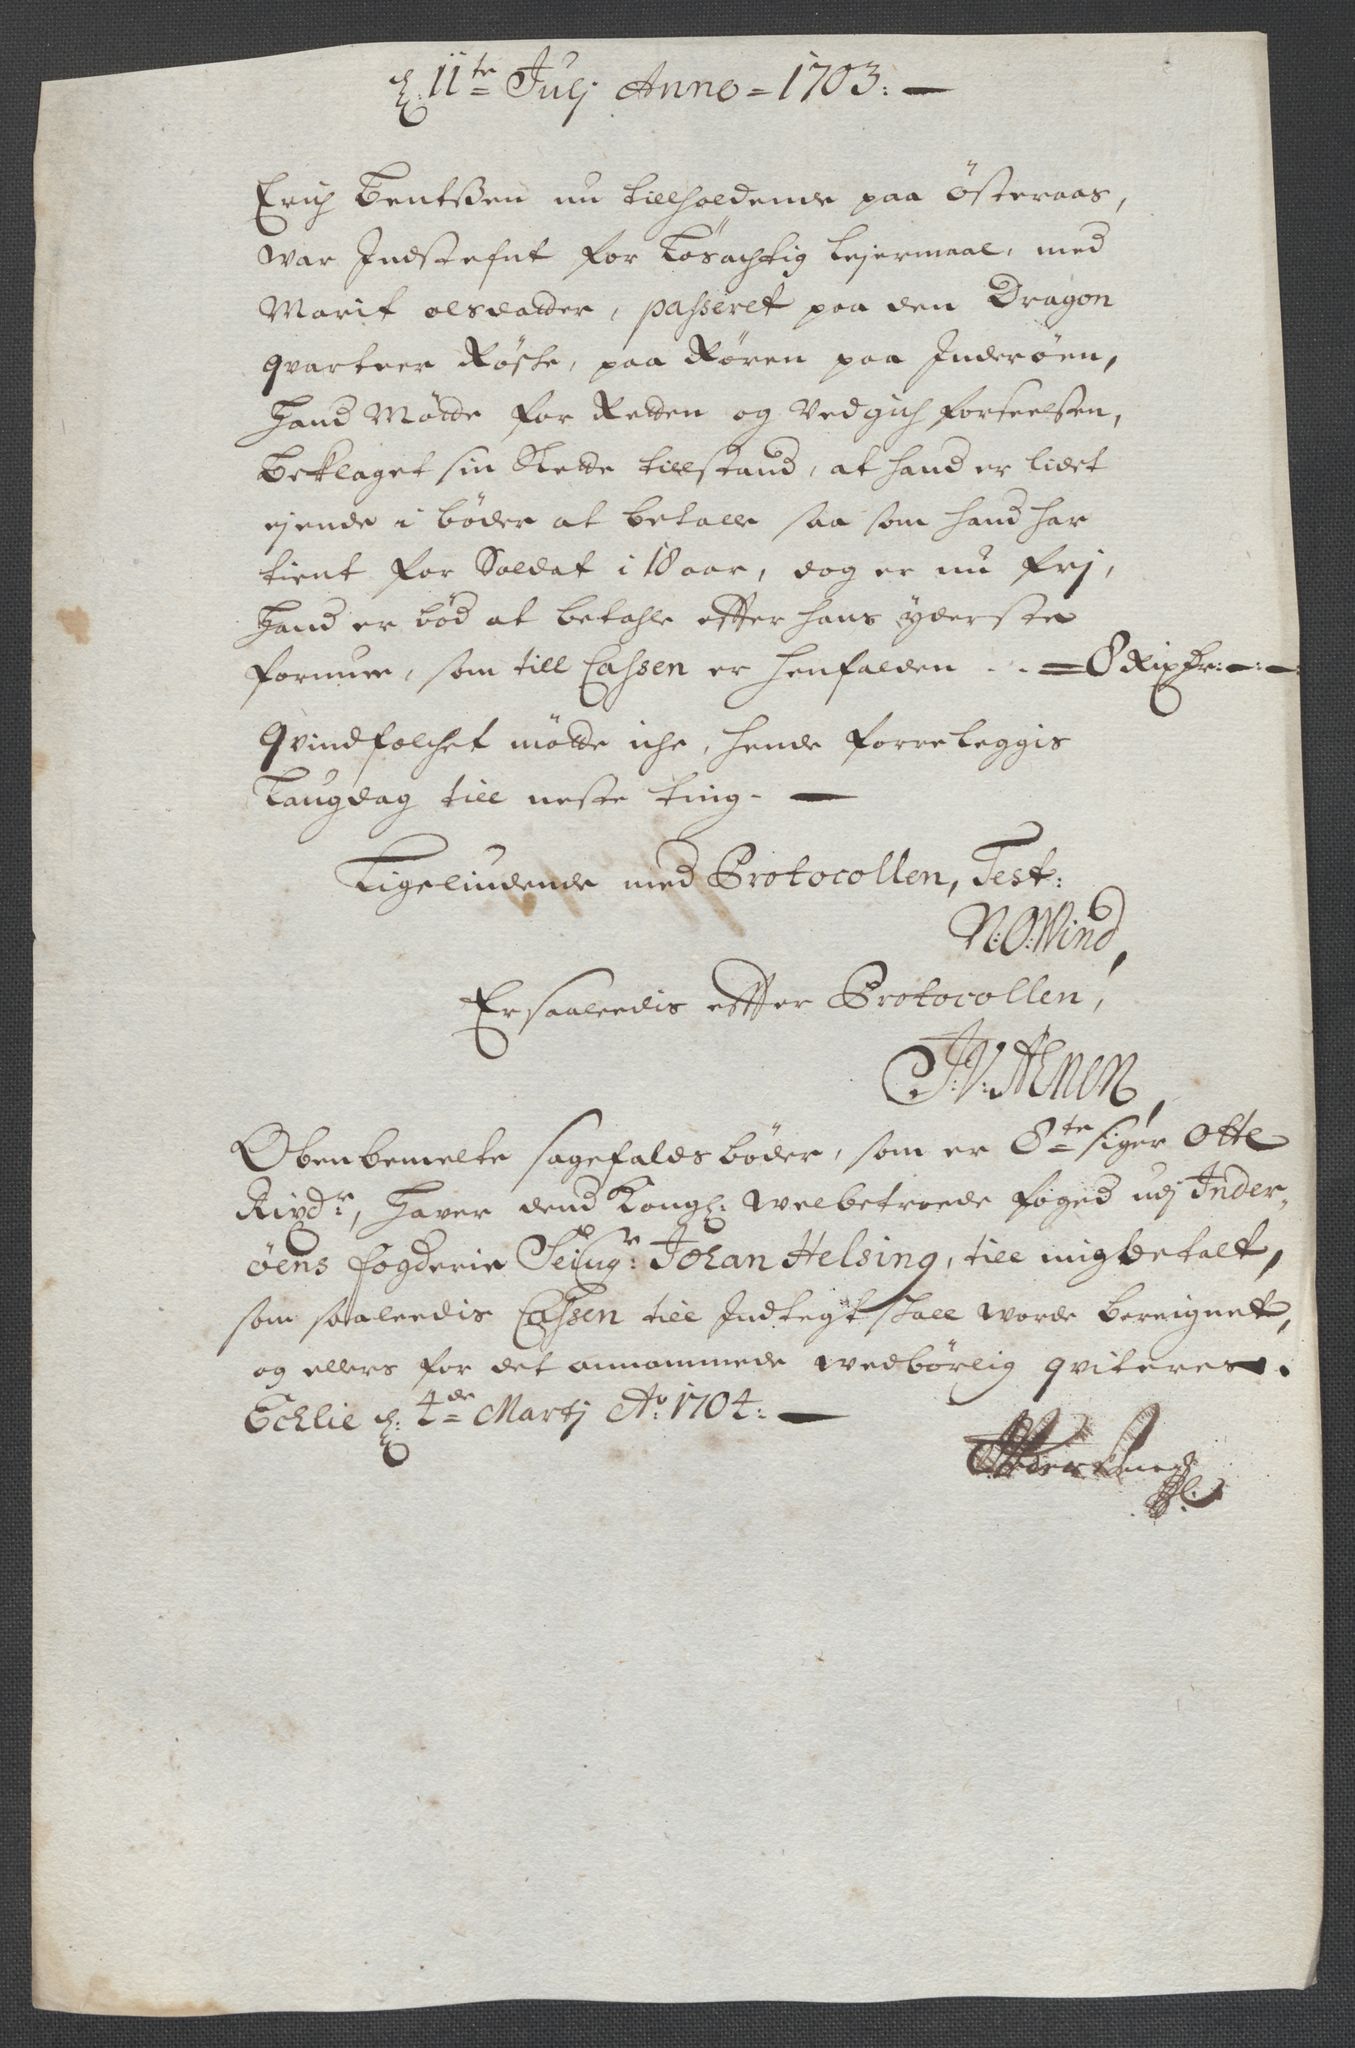 d: 11te Julj Anno = 1703: —
Erich Bentsen nu tillholdende paa Østeraas,
war Indstefnt for Løsachtig leiermaal, med
Marit olsdatter, passeret paa den Dragon
qvarteer Røste, paa Røren paa Inderøen,
Hand Møtte for Retten og Vedgich forseelsen,
beklaget sin slette tillstand, at hand er lidet
ejende i bøder at betalle saa som hand har
tient for Soldat i 18 aar, dog er nu frj,
Hand er bød at betahle etter hans yderste
formue, som till Cassen er henfalden - - = 8 Rixdr: —: —
qvindfolchet møtte iche, hende forreleggis
Laugdag till neste ting. —
Ligeliudende med Protocollen, Test:
N: O: Wind,
Er saaleedis effter Protocollen,
J: V: Aenen,
Obenbemelte sagefalds bøder, som er 8te siger Otte
Rixdr, haver dend Kongl: welbetroede foged udj Inder-
øens fogderie Seigr: Johan Helsing, till mig betalt,
som saaleedis Cassen till Indtegt skall worde bereignet,
og ellers for det annammede wedbørlig qviteres.
Echlie d: 4de Martj Ao: 1704: —